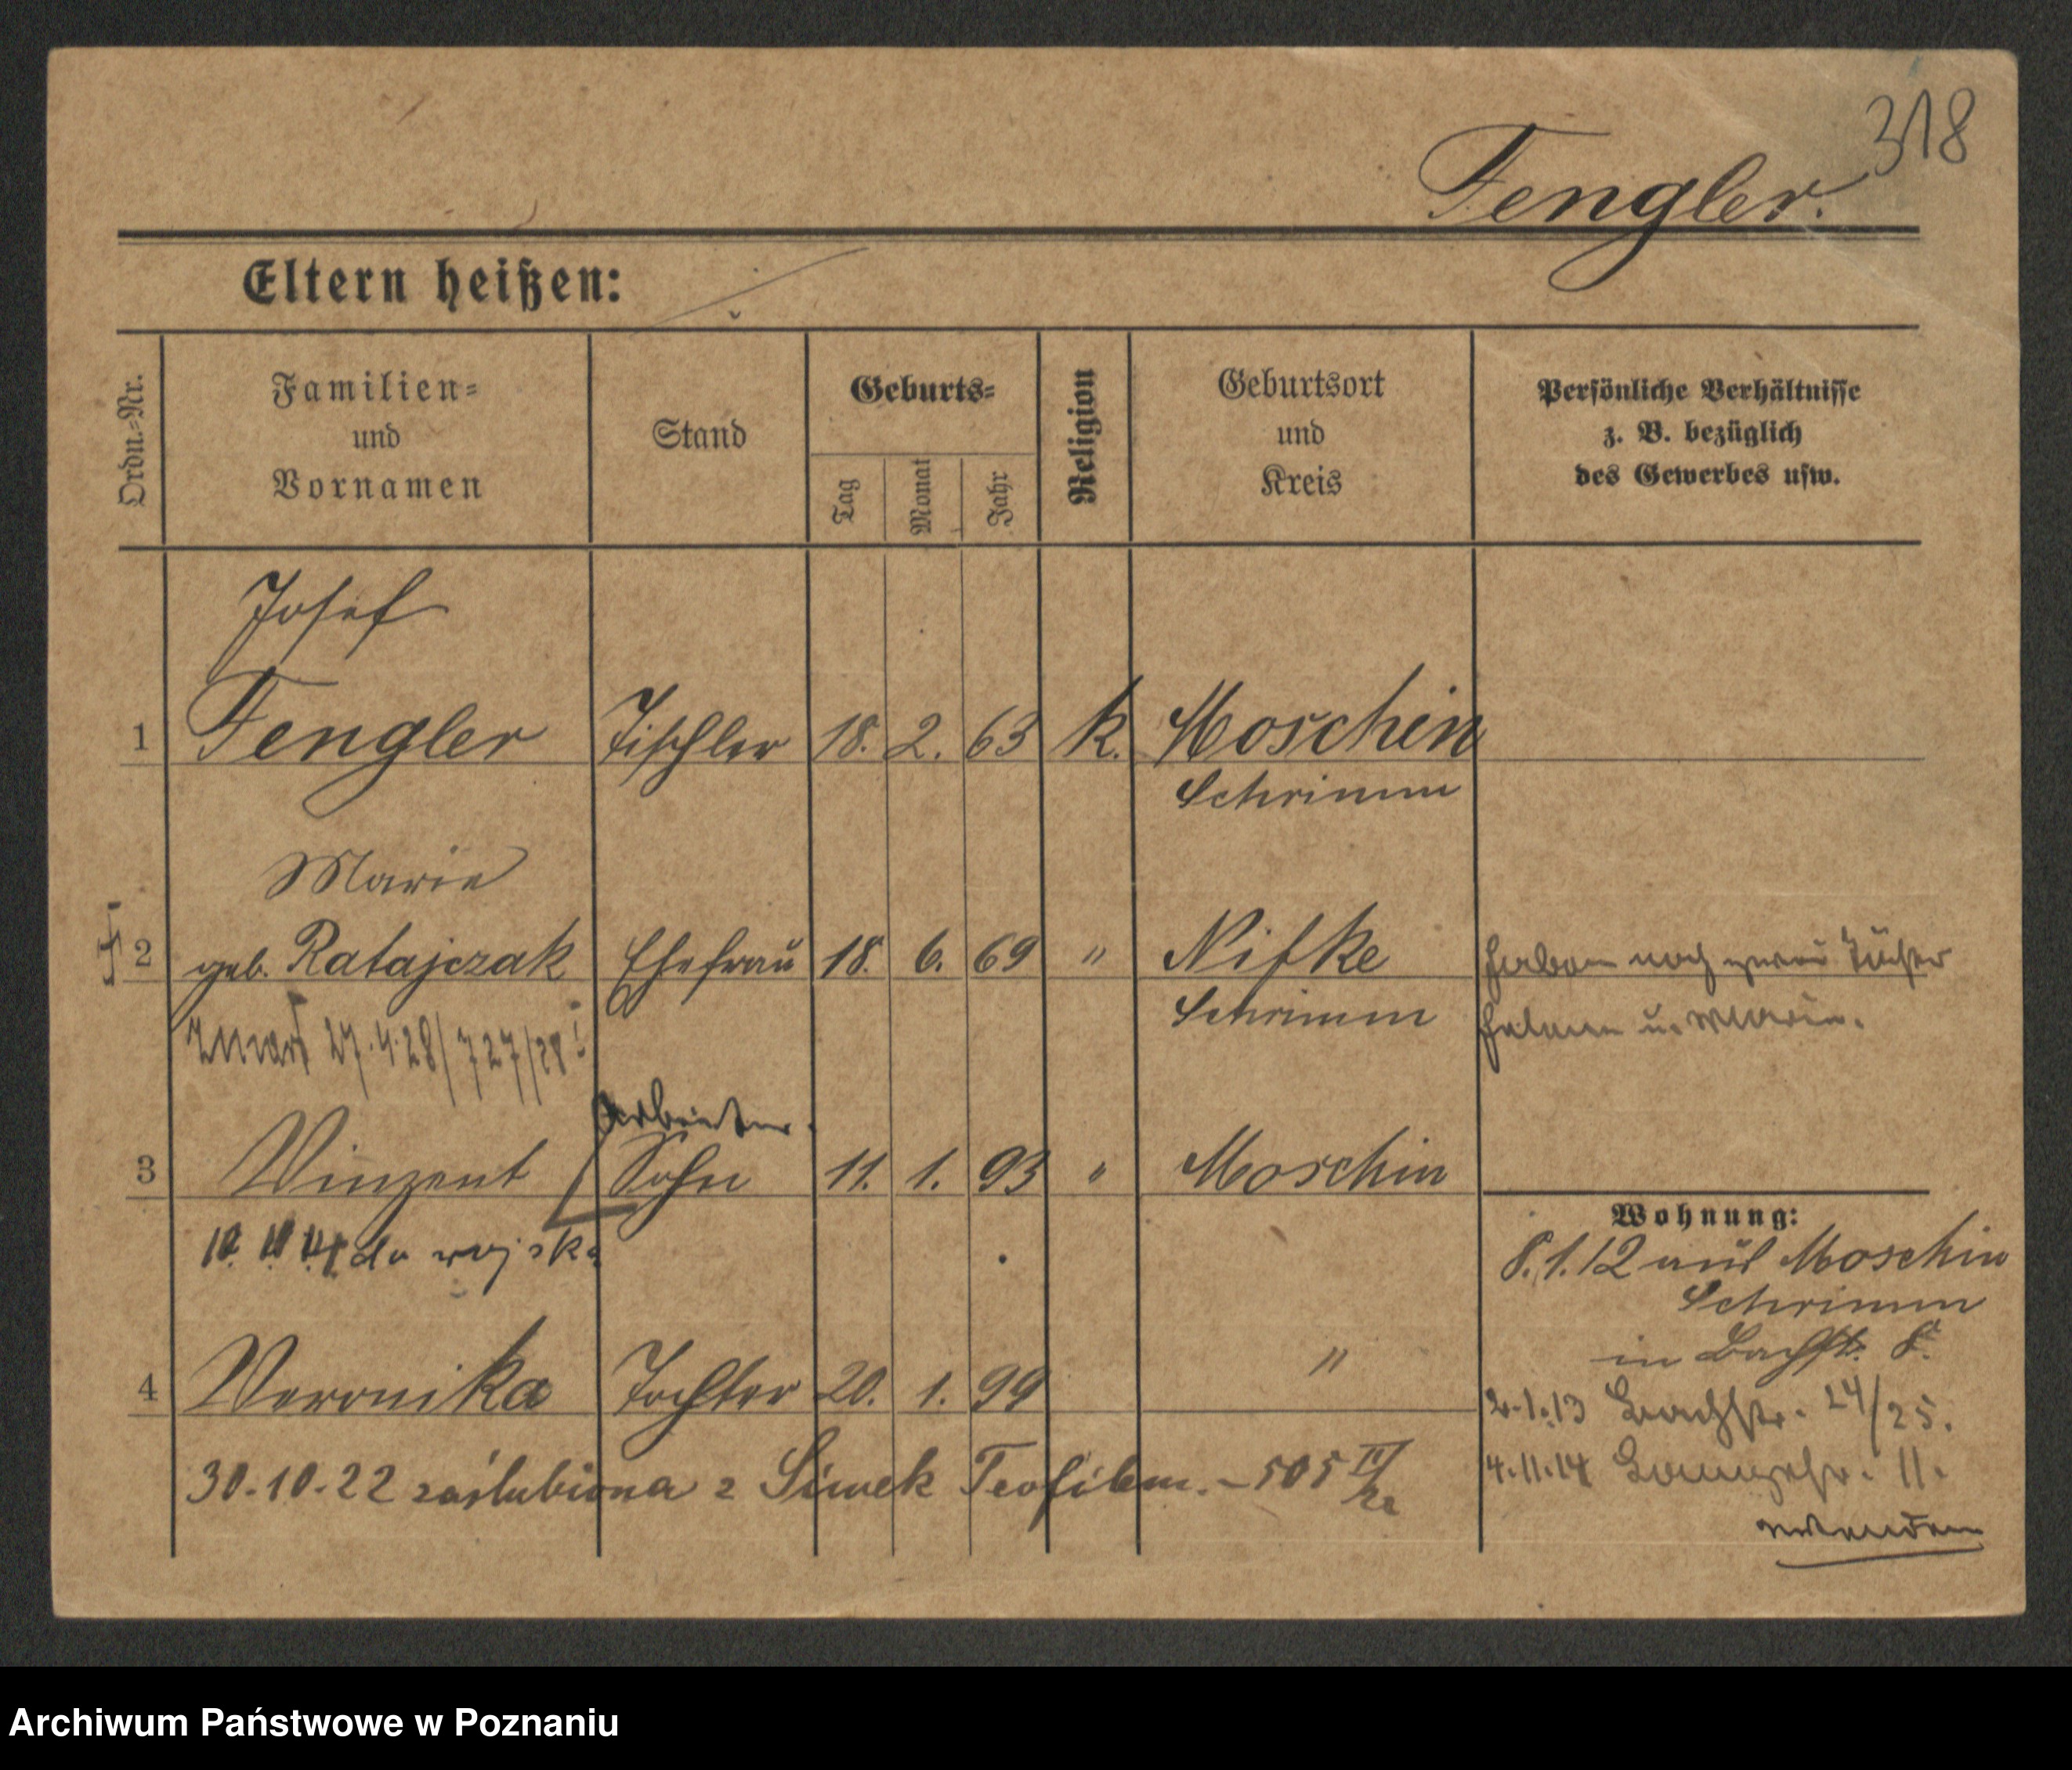 318
Fengler.
Eltern heißen:
Ordn.-Nr.
Familien-
und
Vornamen
Stand
Geburts-
Tag
Monat
Jahr
Religion
Geburtsort
und
Kreis
Persönliche Verhältnisse
z. B. bezüglich
des Gewerbes usw.
Josef
1 Fengler Tischler 18. 2. 63 k. Moschin
Schrimm
Marie
2 geb. Ratajczak Ehefrau 18. 6. 69 " Nifke haben noch zwei Töchter
Schrimm Helene u. Marie.
Zmarł 27.4.28/727/28
Arbeiter.
3 Winzent Sohn 11. 1. 93 " Moschin
do wojska
Wohnung:
8.1.12 aus Moschin
Schrimm
in Bachstr. 8.
4 Weronika Tochter 20. 1. 99 "
2.1.13 Bachstr. 24/25.
30.10.22 zaślubiona z Siwek Teofilem. – 505 IV/22
4.11.14 11.
wenden
Archiwum Państwowe w Poznaniu